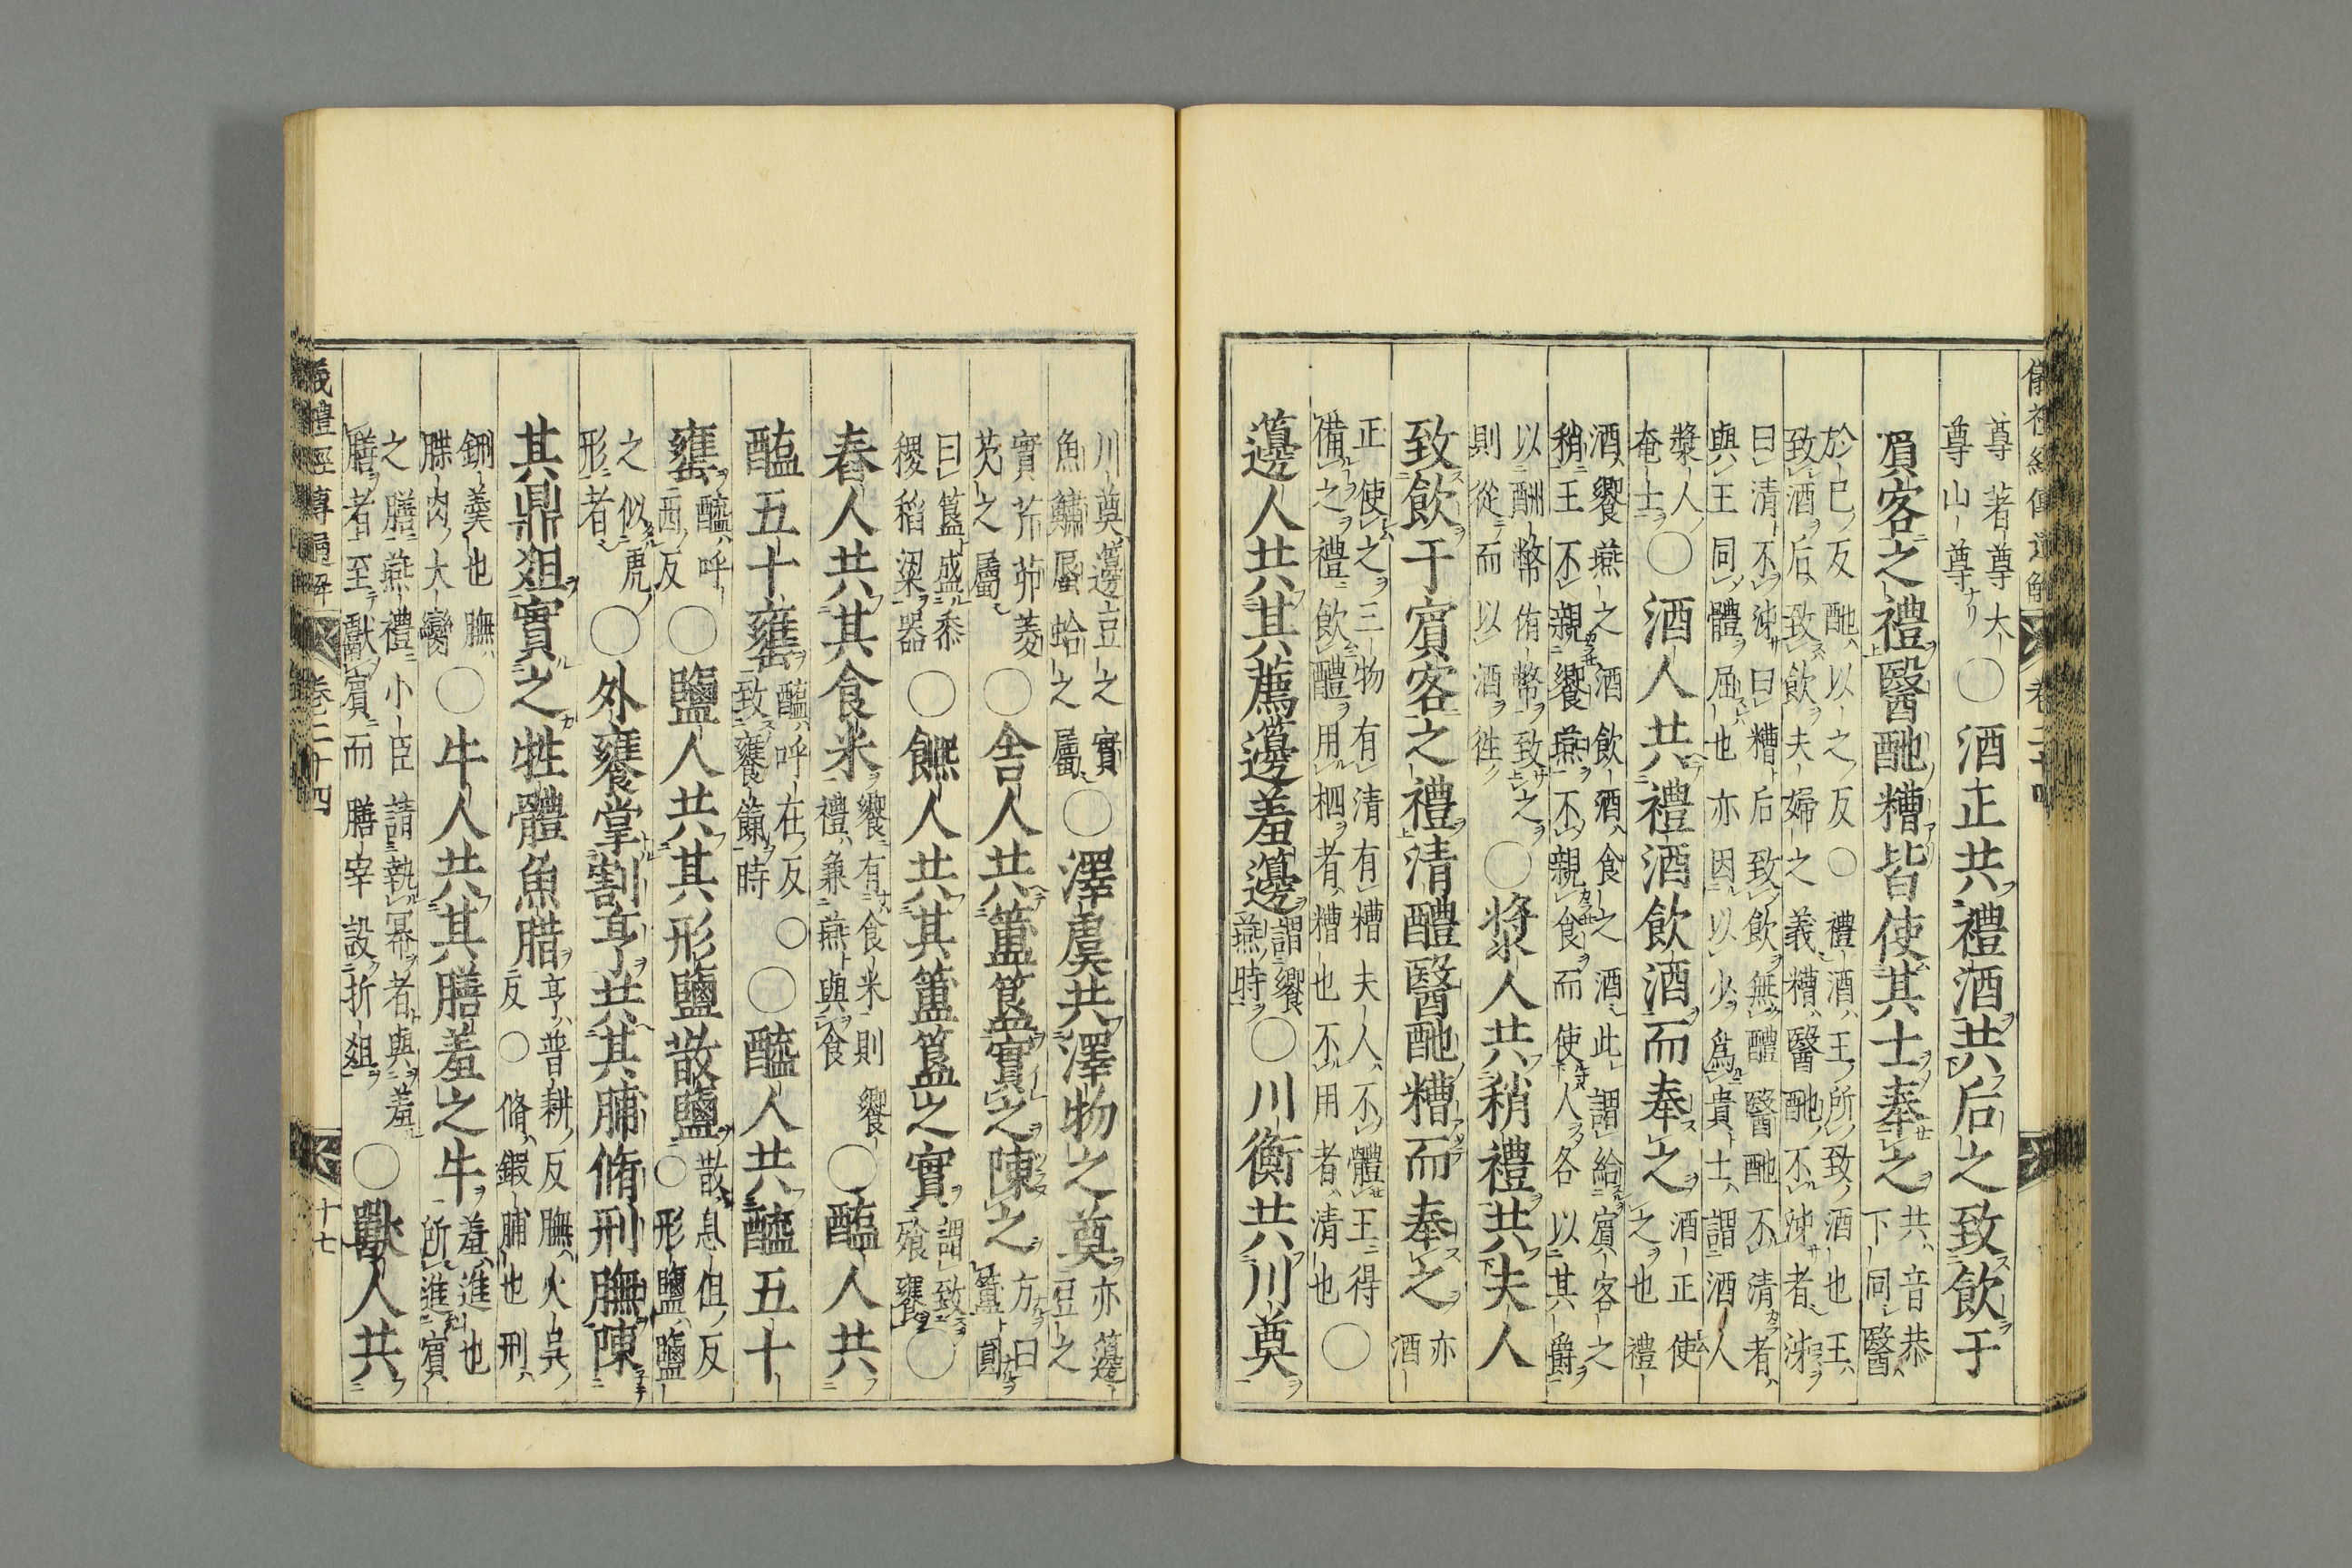 儀禮經傳通解 卷二十四
尊著尊大
尊山尊 ○酒正共禮酒共后之致飲于
賔客之禮醫酏糟皆使其士奉之共音恭
下同醫
於已反酏以之反○禮酒王所致酒也王
致酒后致飲夫婦之義糟醫酏不泲者泲
曰清不泲曰糟后致飲無醴醫酏不清者
與王同體屈也亦因以少爲貴士謂酒人
漿人
奄士○酒人共禮酒飲酒而奉之酒正使
之也禮
酒饗燕之酒飲酒食之酒此謂給賔客之
稍王不親饗燕不親食而使人各以其爵
以酬幣侑幣致之
則從而以酒往○漿人共稍禮共夫人
致飲于賔客之禮清醴醫酏糟而奉之亦
酒
正使之三物有清有糟夫人不體王得
備之禮飲醴用柶者糟也不用者清也○
籩人共其薦籩羞籩謂饗
燕時○川衡共川奠
川奠籩豆之實
魚鱐蜃蛤之屬○澤虞共澤物之奠亦籩
豆之
實芹茆菱
芡之屬○舍人共簠簋實之陳之方曰
簠圓
曰簋盛黍
稷稻粱器○饎人共其簠簋之實謂致
飧饔○
舂人共其食米饗有食米則饗
禮兼燕與食○醢人共
醢五十罋醢呼在反○
致饔餼時○醯人共醯五十
罋醯呼
西反○鹽人共其形鹽散鹽散息但反
○形鹽鹽
之似虎
形者○外饔掌割亨共其脯脩刑膴陳
其鼎俎實之牲體魚腊亨普耕反膴火吳
反○脩鍛脯也刑
鉶羹也膴
䐑肉大臠○牛人共其膳羞之牛羞進也
所進賔
之膳燕禮小臣請執冪者與羞
膳者至獻賔而膳宰設折俎○獸人共
儀禮經傳通解 卷二十四 十七